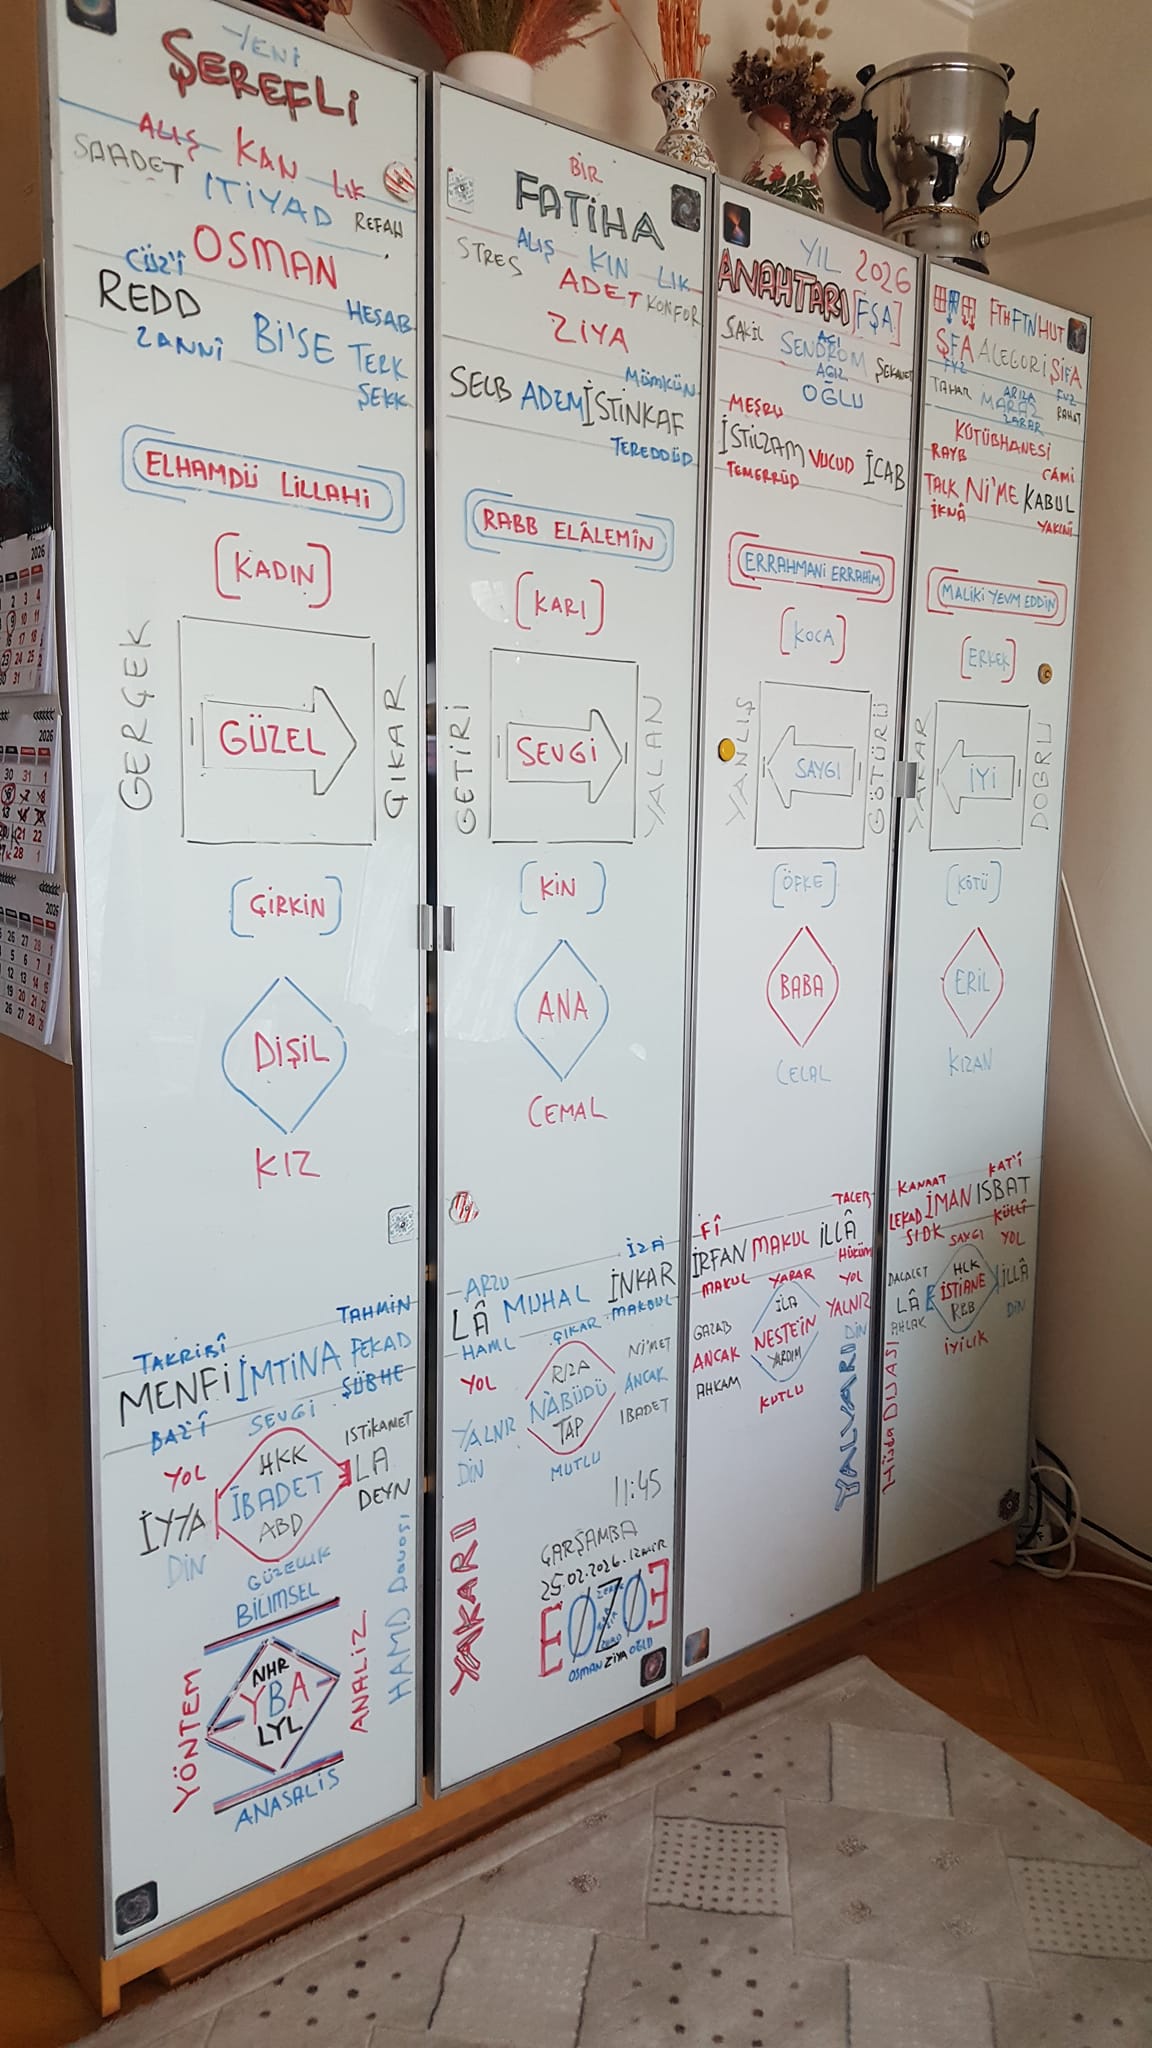 YENİ
ŞEREFLİ
ALIŞ KAN LIK
SAADET İTİYAD REFAH
OSMAN
CÜZ'İ
REDD HESAB
ZANNİ Bİ'SE TERK
ŞEKK
ELHAMDÜ LİLLAHİ
[KADIN]
GERÇEK
GÜZEL
ÇIKAR
[ÇİRKİN]
DİŞİL
KIZ
TAHMİN
TAKRİBİ
MENFİ İMTİNA FEKAD
BAZ'İ ŞÜBHE
SEVGİ
YOL HKK İSTİKAMET
İYYA İBADET LA
DİN ABD DEYN
GÜZELLİK
BİLİMSEL
YÖNTEM
NHR
YBA
LYL
ANALİZ
ANASALİS
HAMD DAVASI
BİR
FATİHA
ALIŞ KIN LIK
STRES ADET KONFOR
ZİYA
MÜMKÜN
SELB ADEM İSTİNKAF
TEREDDÜD
RABB ELÂLEMİN
[KARI]
GETİRİ
SEVGİ
YALAN
[KİN]
ANA
CEMAL
ARZU
LÂ MUHAL İNKAR
HAML ÇIKAR MAKBUL
YOL RIZA Nİ'MET
YALNIZ NABÜDÜ ANCAK
DİN TAP IBADET
MUTLU
11:45
ÇARŞAMBA
25.02.2026.İZMİR
YAKARI
OSMAN ZİYA OĞLU
YIL 2026
ANAHTARI [FŞA]
ŞAKİL SENDROM
AĞIZ
OĞLU
MEŞRU
İSTİLZAM VUCUD İCAB
TEMERRÜD
ERRAHMANİ ERRAHİM
[KOCA]
YANLIŞ
SAYGI
GÖTÜRÜ
[ÖFKE]
BABA
CELAL
FÎ TALEB
İRFAN MAKUL İLLÂ
MAKUL YARAR HÜKÜM
YOL
GAZAB İLA YALNIZ
ANCAK NESTEİN DİN
AHKAM YARDIM
KUTLU
YALVARI
FTH FTN HUT
ŞFA ALEGORİ ŞİFA
TAHAR MARAZ RAHAT
ZARAR
KÜTÜBHANESİ
RAYB CÂMİ
TALK Nİ'ME KABUL
İKNÂ YAKINİ
MALİKİ YEVM EDDİN
[ERKEK]
YAKAR
İYİ
DOĞRU
[KÖTÜ]
ERİL
KIZAN
KANAAT KAT'İ
LEKAD İMAN ISBAT
SIDK SAYGI KÜLLÎ
YOL
DALALET HLK
LÂ İSTİANE İLLÂ
AHLAK RBB DİN
İYİLİK
Hüda DUASI